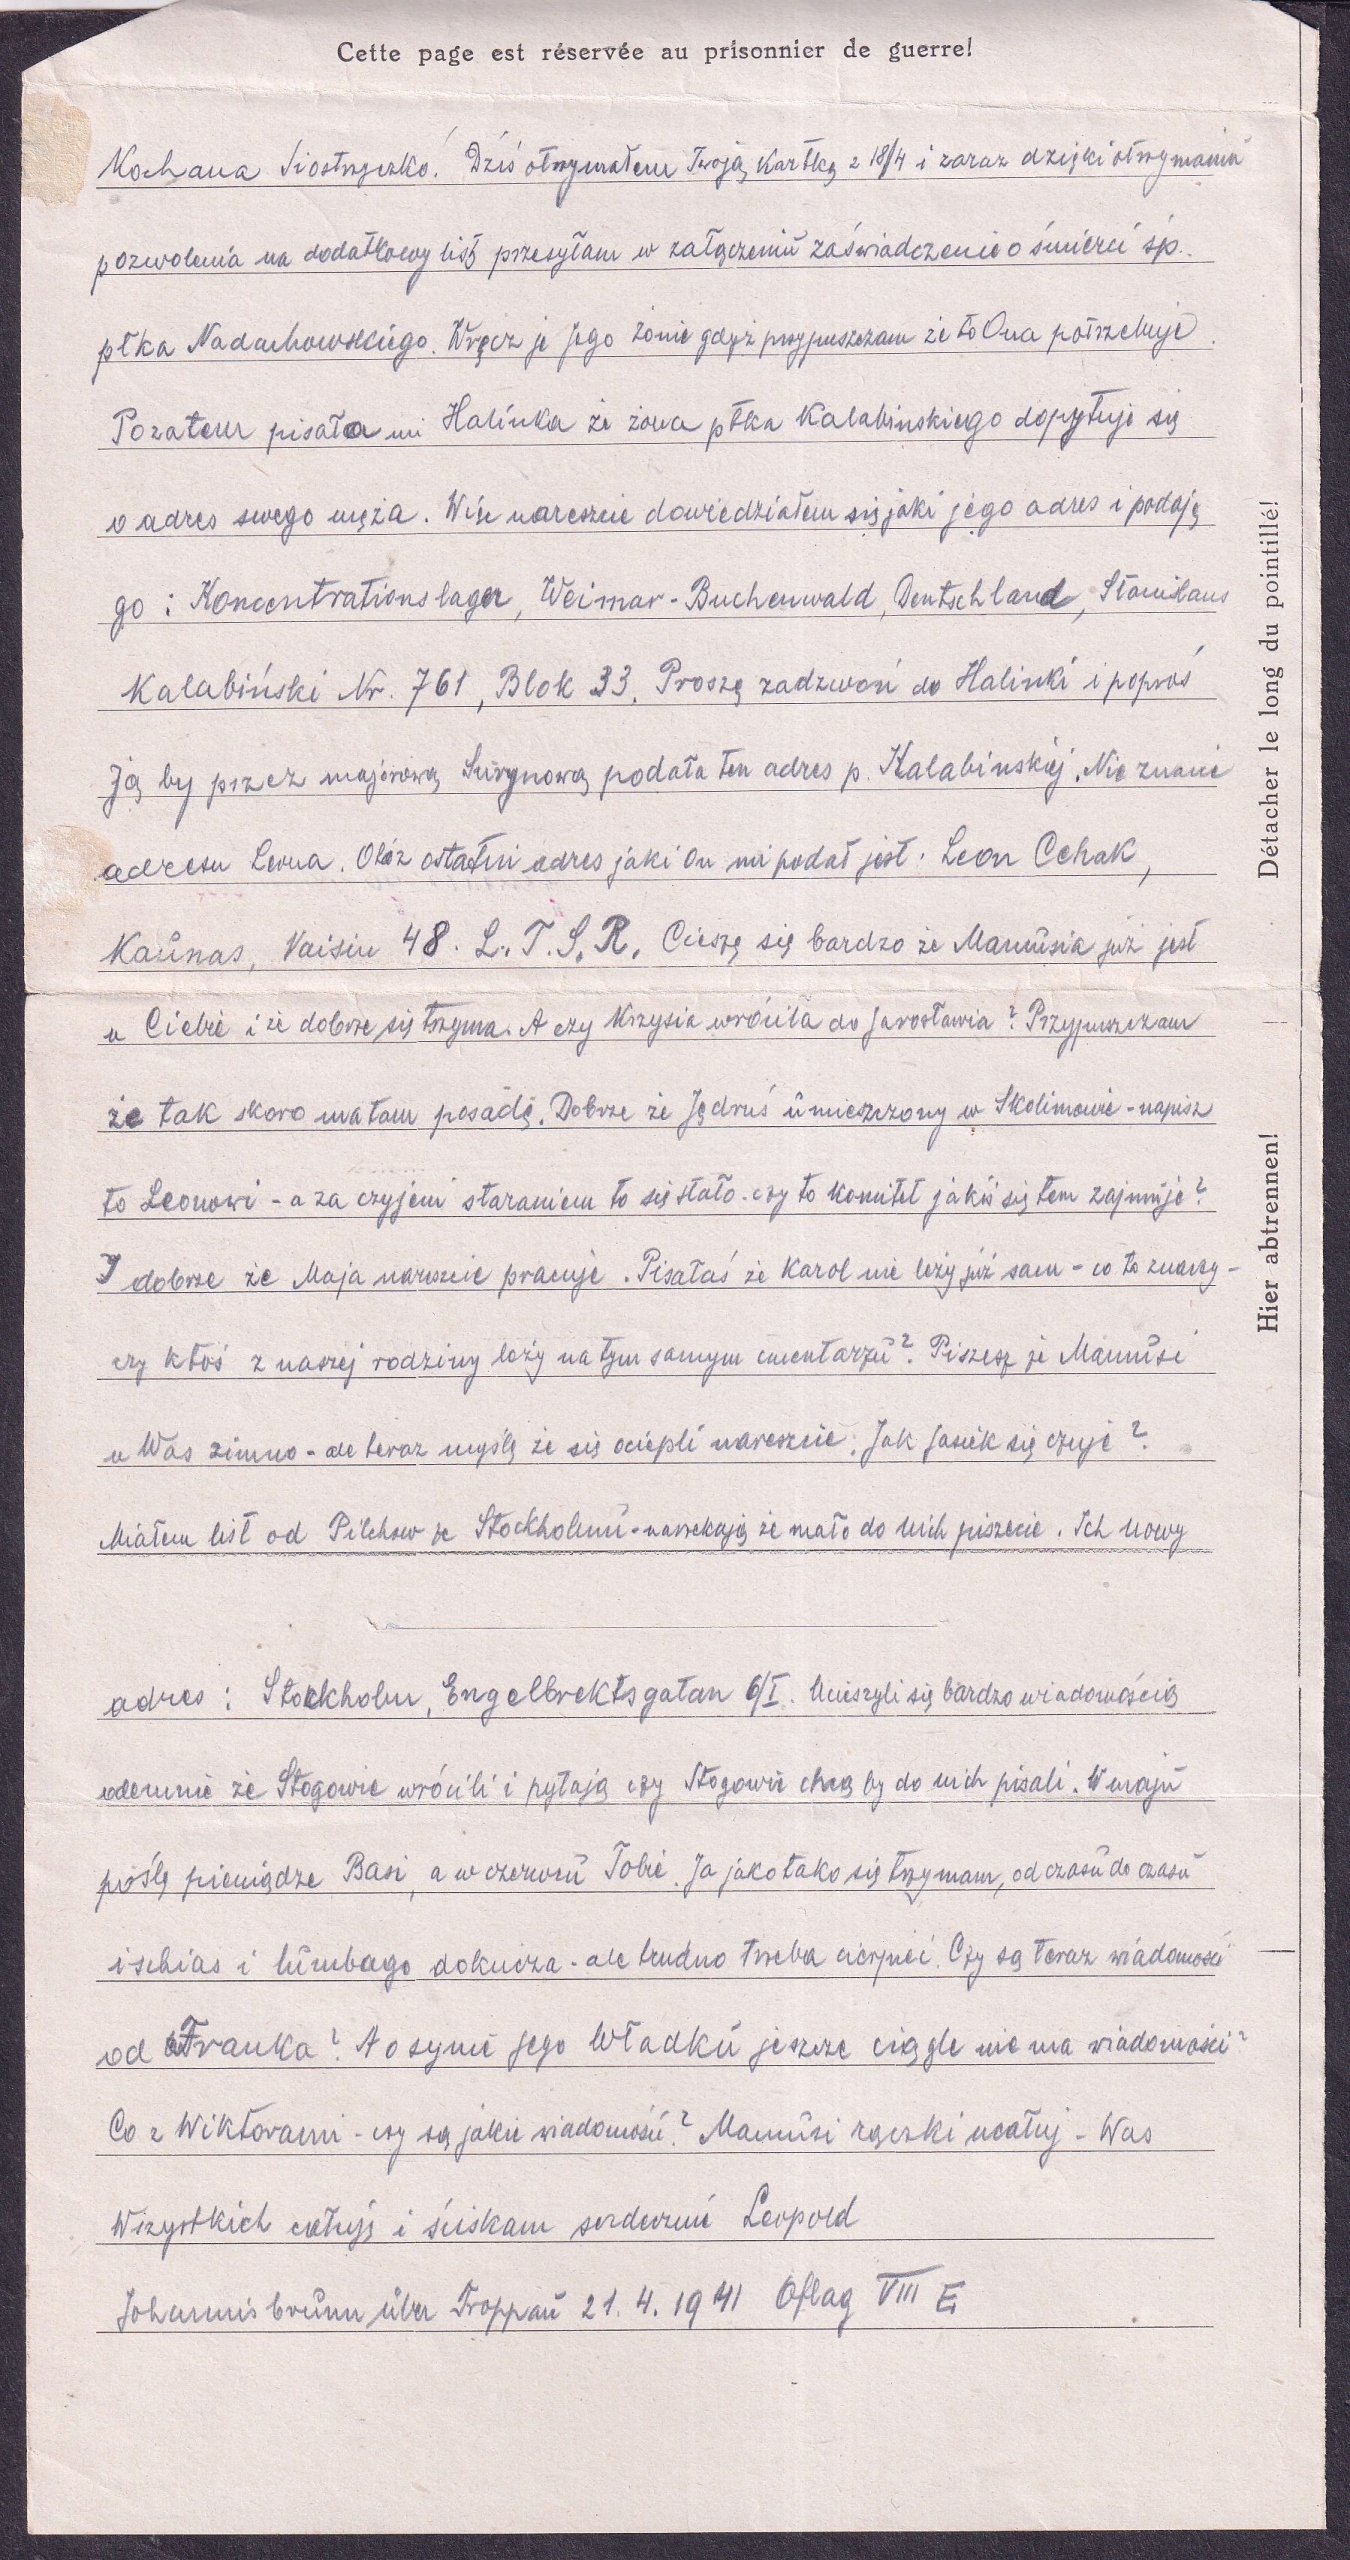 Cette page est réservée au prisonnier de guerre!
Kochana Siostrzyczko! Dziś otrzymałem Twoją kartkę z 18/4 i zaraz dzięki otrzymaniu
pozwolenia na dodatkowy list przesyłam w załączeniu zaświadczenie o śmierci śp.
płka Nadachowskiego. Wręcz je Jego żonie gdyż przypuszczam że to Ona potrzebuje.
Pozatem pisała mi Halinka że żona płka Kalabinskiego dopytuje się
o adres swego męża. Więc nareszcie dowiedziałem się jaki jego adres i podaję
go: Koncentrationslager, Weimar-Buchenwald, Deutschland, Stanislaus
Kalabiński Nr. 761, Blok 33. Proszę zadzwoń do Halinki i poproś
Ją by przez majorową podała ten adres p. Kalabinskiej. Nie znacie
adresu Leona. Otóż ostatni adres jaki On mi podał jest: Leon Cehak,
Kaunas, Vaisiu 48. L.T.S.R. Cieszę się bardzo że Mamusia już jest
u Ciebie i że dobrze się trzyma. A czy Krzysia wróciła do Jarosławia? Przypuszczam
że tak skoro ma tam posadę. Dobrze że Jędruś umieszczony w Skolimowie - napisz
to Leonowi - a za czyjem staraniem to się stało - czy to komitet jakiś się tem zajmuje?
I dobrze że Maja nareszcie pracuje. Pisałaś że Karol nie leży już sam - co to znaczy -
czy ktoś z naszej rodziny leży na tym samym cmentarzu? Piszesz że Mamusi
u Was zimno - ale teraz myślę że się ociepli nareszcie. Jak Jasiek się czuje?
Miałem list od Pilchow ze Stockholmu - narzekają że mało do nich piszecie. Ich nowy
adres: Stockholm, Engelbrektsgatan 6/I. Ucieszyli się bardzo wiadomością
odemnie że Stogowie wrócili i pytają czy Stogowie chcą by do nich pisali. W maju
poślę pieniądze Basi, a w czerwcu Tobie. Ja jako tako się trzymam, od czasu do czasu
ischias i lumbago dokucza - ale trudno trzeba cierpieć. Czy są teraz wiadomości
od Franka? A o synie jego Władku jeszcze ciągle nie ma wiadomości?
Co z Wiktorami - czy są jakie wiadomości? Mamusi rączki ucałuj - Was
Wszystkich całuję i ściskam serdecznie Leopold
Johannisbrunn über Troppau 21.4.1941 Oflag VIII E
Détacher le long du pointillé!
Hier abtrennen!